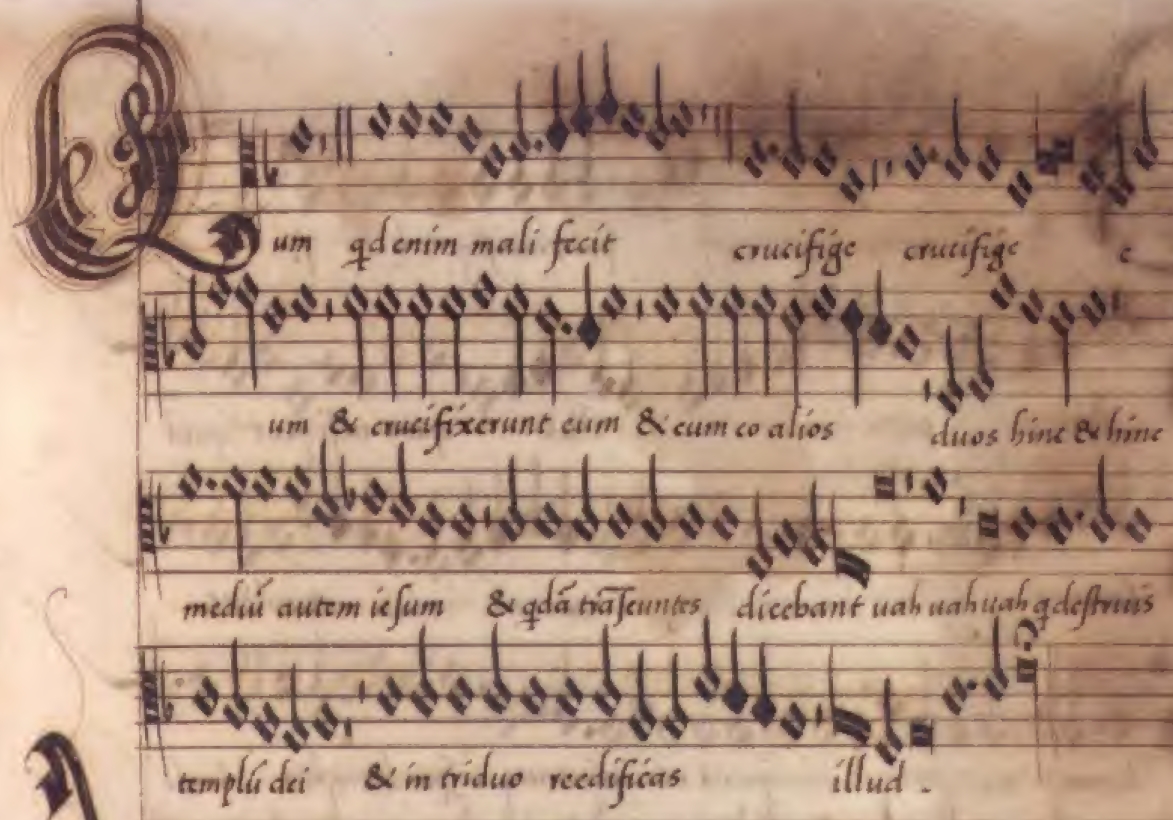 um qd enim mali fecit crucifige crucifige e
um & crucifixerunt eum & cum eo alios duos hinc & hinc
mediū autem iesum & qdā trāseuntes dicebant uah uah uah q destruis
templū dei & in triduo reedificas illud .